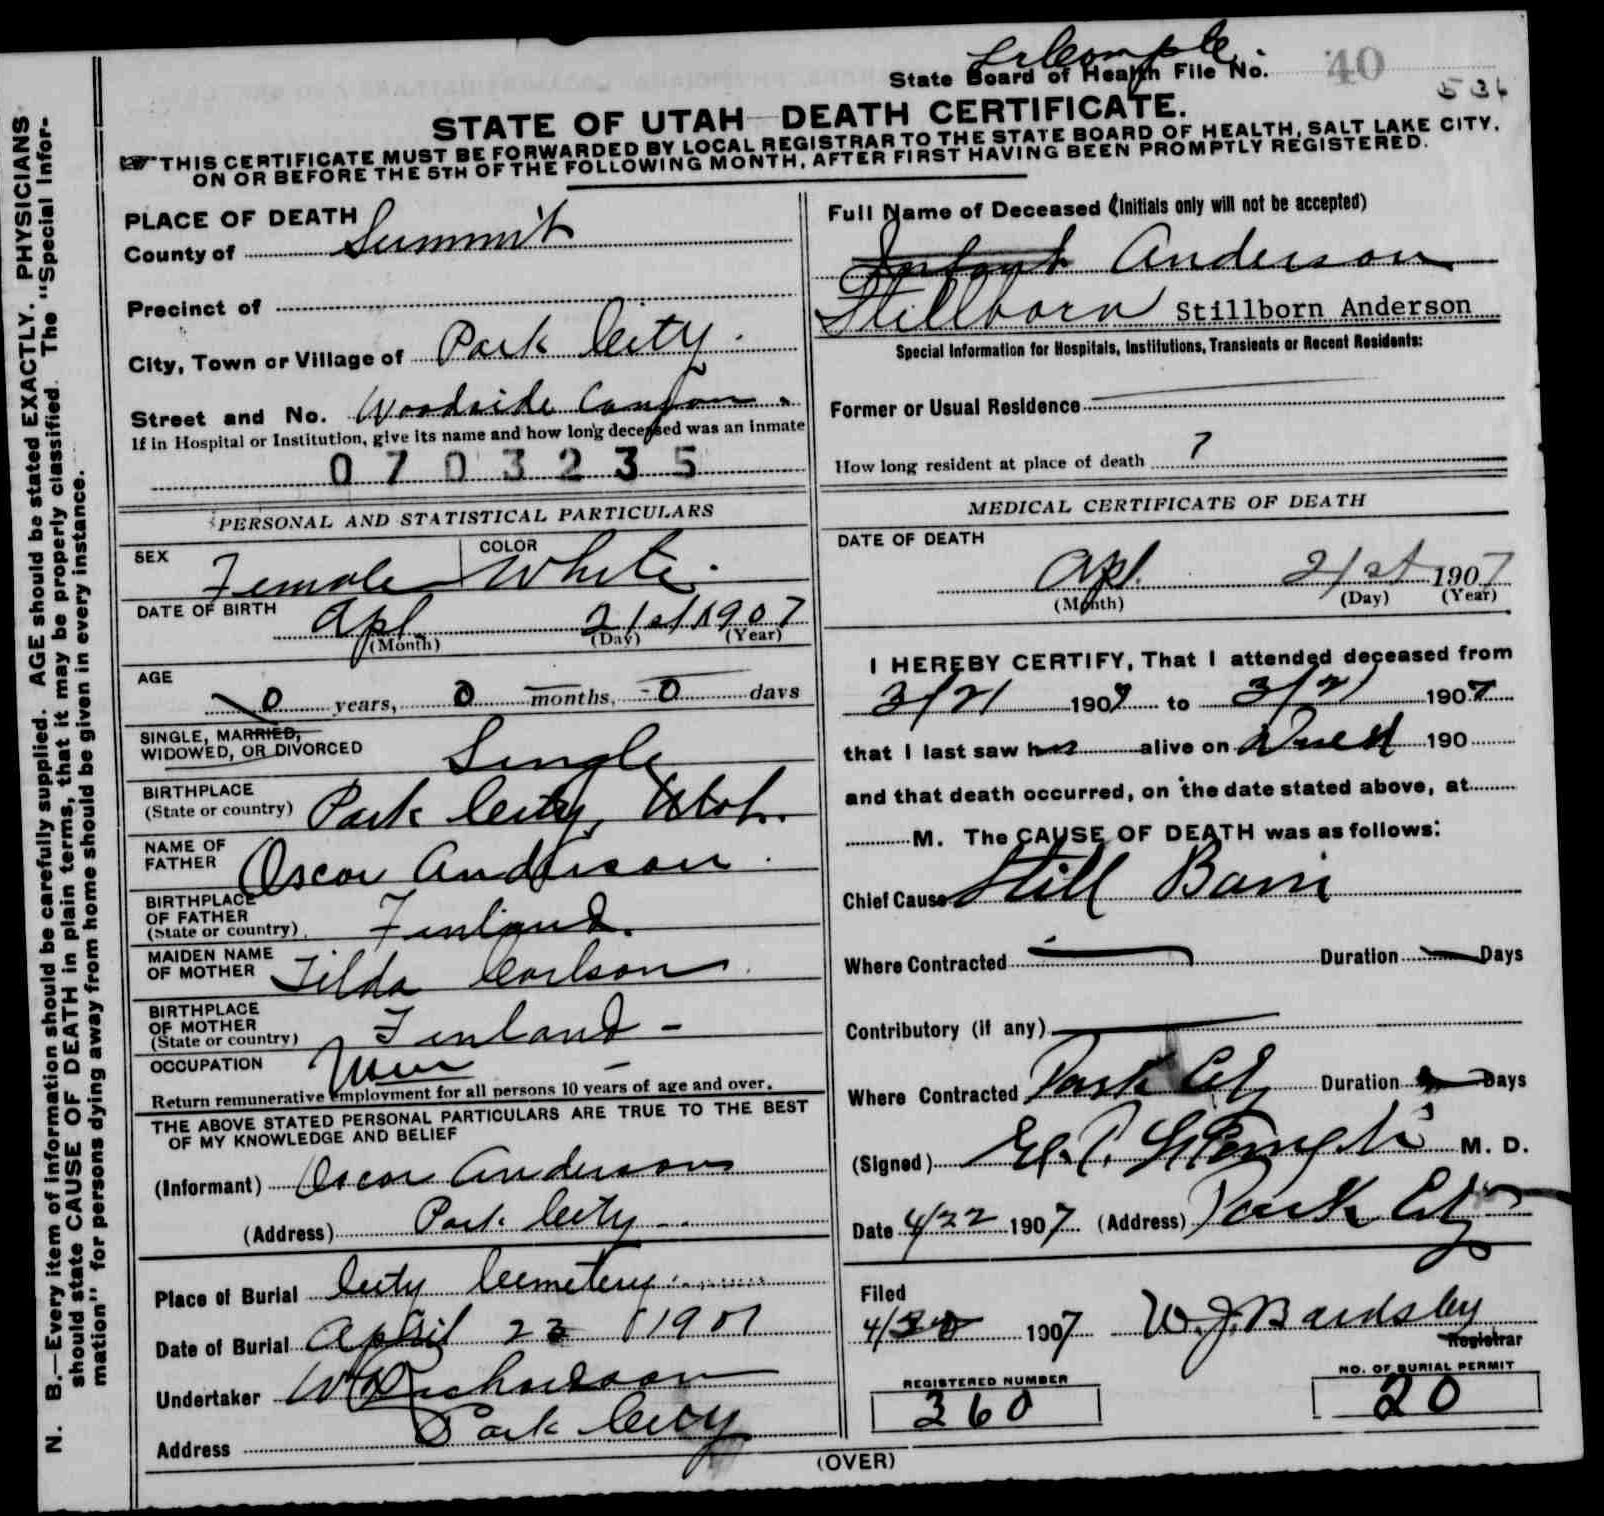 State Board of Health File No. 40
536
STATE OF UTAH—DEATH CERTIFICATE.
THIS CERTIFICATE MUST BE FORWARDED BY LOCAL REGISTRAR TO THE STATE BOARD OF HEALTH, SALT LAKE CITY,
ON OR BEFORE THE 5TH OF THE FOLLOWING MONTH, AFTER FIRST HAVING BEEN PROMPTLY REGISTERED.
N. B.—Every item of information should be carefully supplied. AGE should be stated EXACTLY. PHYSICIANS
should state CAUSE OF DEATH in plain terms, that it may be properly classified. The "Special Infor-
mation" for persons dying away from home should be given in every instance.
PLACE OF DEATH
County of Summit
Precinct of
City, Town or Village of Park City.
Street and No. Woodside Canyon.
If in Hospital or Institution, give its name and how long deceased was an inmate
0703235
PERSONAL AND STATISTICAL PARTICULARS
SEX Female COLOR White.
DATE OF BIRTH Apl. 21st 1907
(Month) (Day) (Year)
AGE
0 years, 0 months, 0 days
SINGLE, MARRIED,
WIDOWED, OR DIVORCED Single
BIRTHPLACE
(State or country) Park City, Utah.
NAME OF
FATHER Oscar Anderson.
BIRTHPLACE
OF FATHER
(State or country) Finland.
MAIDEN NAME
OF MOTHER Tilda Carlson.
BIRTHPLACE
OF MOTHER
(State or country) Finland -
OCCUPATION
Return remunerative employment for all persons 10 years of age and over.
THE ABOVE STATED PERSONAL PARTICULARS ARE TRUE TO THE BEST
OF MY KNOWLEDGE AND BELIEF
(Informant) Oscar Anderson
(Address) Park City
Place of Burial City Cemetery
Date of Burial April 23 1907
Undertaker W Richardson
Address Park City
Full Name of Deceased (Initials only will not be accepted)
Infant Anderson
Stillborn Stillborn Anderson
Special Information for Hospitals, Institutions, Transients or Recent Residents:
Former or Usual Residence
How long resident at place of death ?
MEDICAL CERTIFICATE OF DEATH
DATE OF DEATH
Apl. 21st 1907
(Month) (Day) (Year)
I HEREBY CERTIFY, That I attended deceased from
3/21 1907 to 3/21 1907
that I last saw her alive on 190
and that death occurred, on the date stated above, at
M. The CAUSE OF DEATH was as follows:
Chief Cause Still Born
Where Contracted Duration Days
Contributory (if any)
Where Contracted Park City Duration Days
(Signed) M. D.
Date 4/22 1907 (Address) Park City
Filed
4/30 1907 W. J. Bardsley
Registrar
REGISTERED NUMBER
360
NO. OF BURIAL PERMIT
20
(OVER)